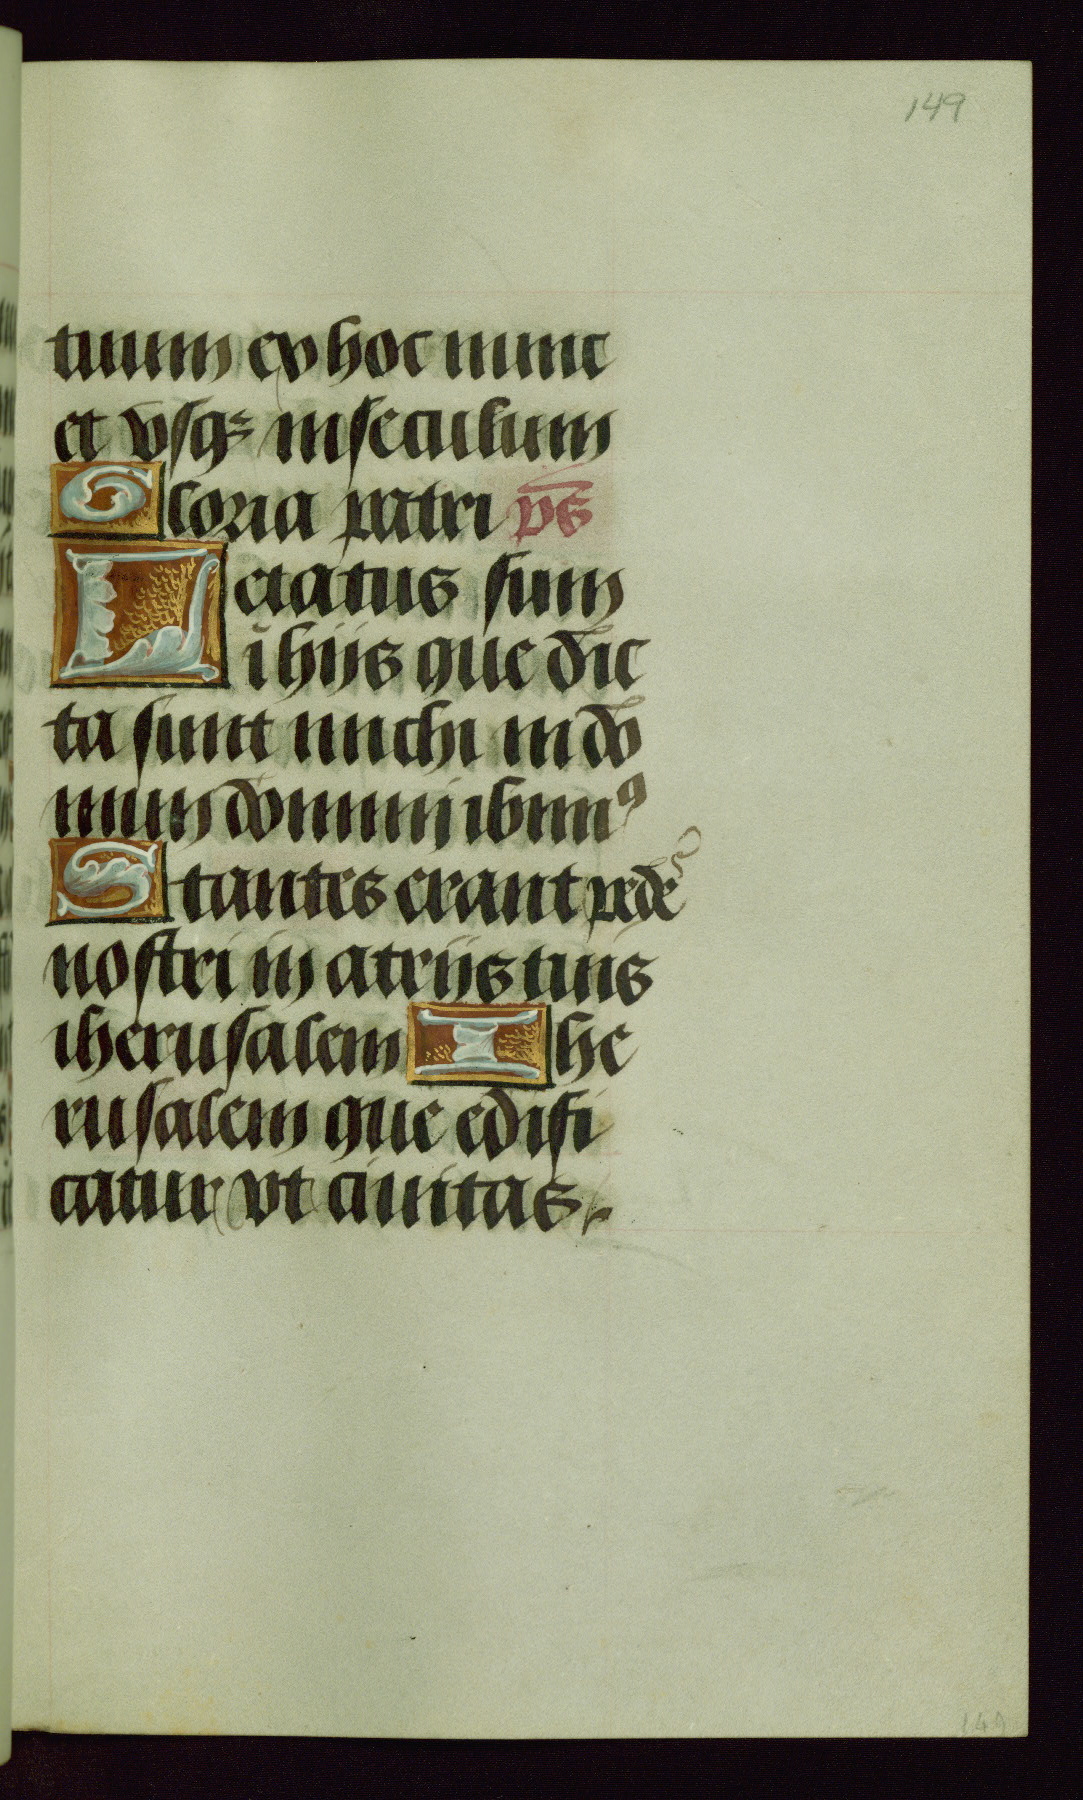 149
tuum ex hoc nunc
et vsqꝫ in seculum
Gloria patri ps̄
Letatus sum
ī hijs que dic
ta sunt michi in do
mum domini ibimꝰ
Stantes erant pedes
nostri in atrijs tuis
iherusalem Ihe
rusalem que edifi
catur vt ciuitas
149